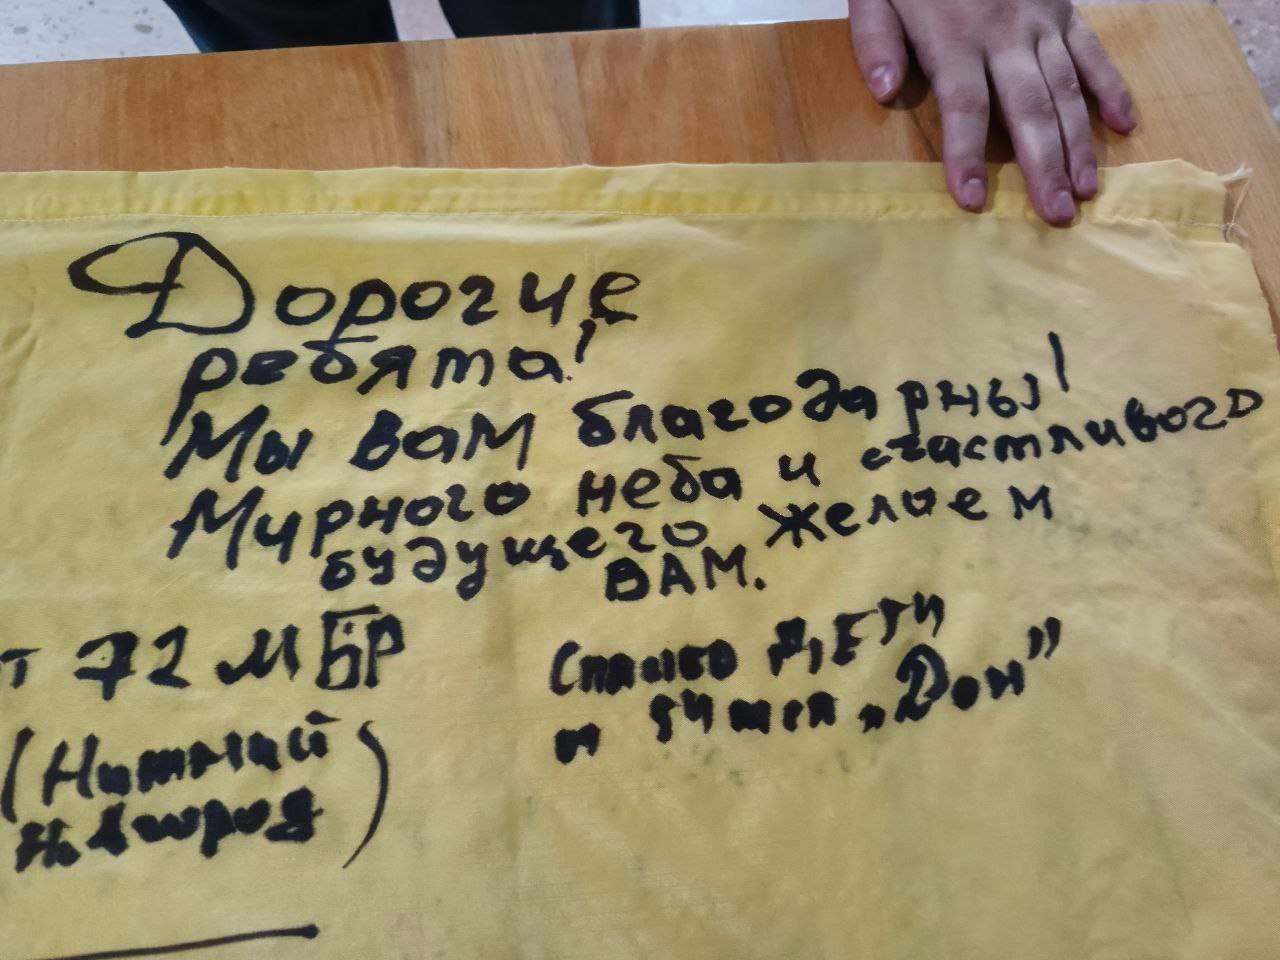 Дорогие
ребята!
Мы вам благодарны!
Мирного неба и счастливого
будущего желаем
ВАМ.
от 72 МБР
(Нижний
Новгород)
Спасибо ДЕТИ
и учителя „Дон”